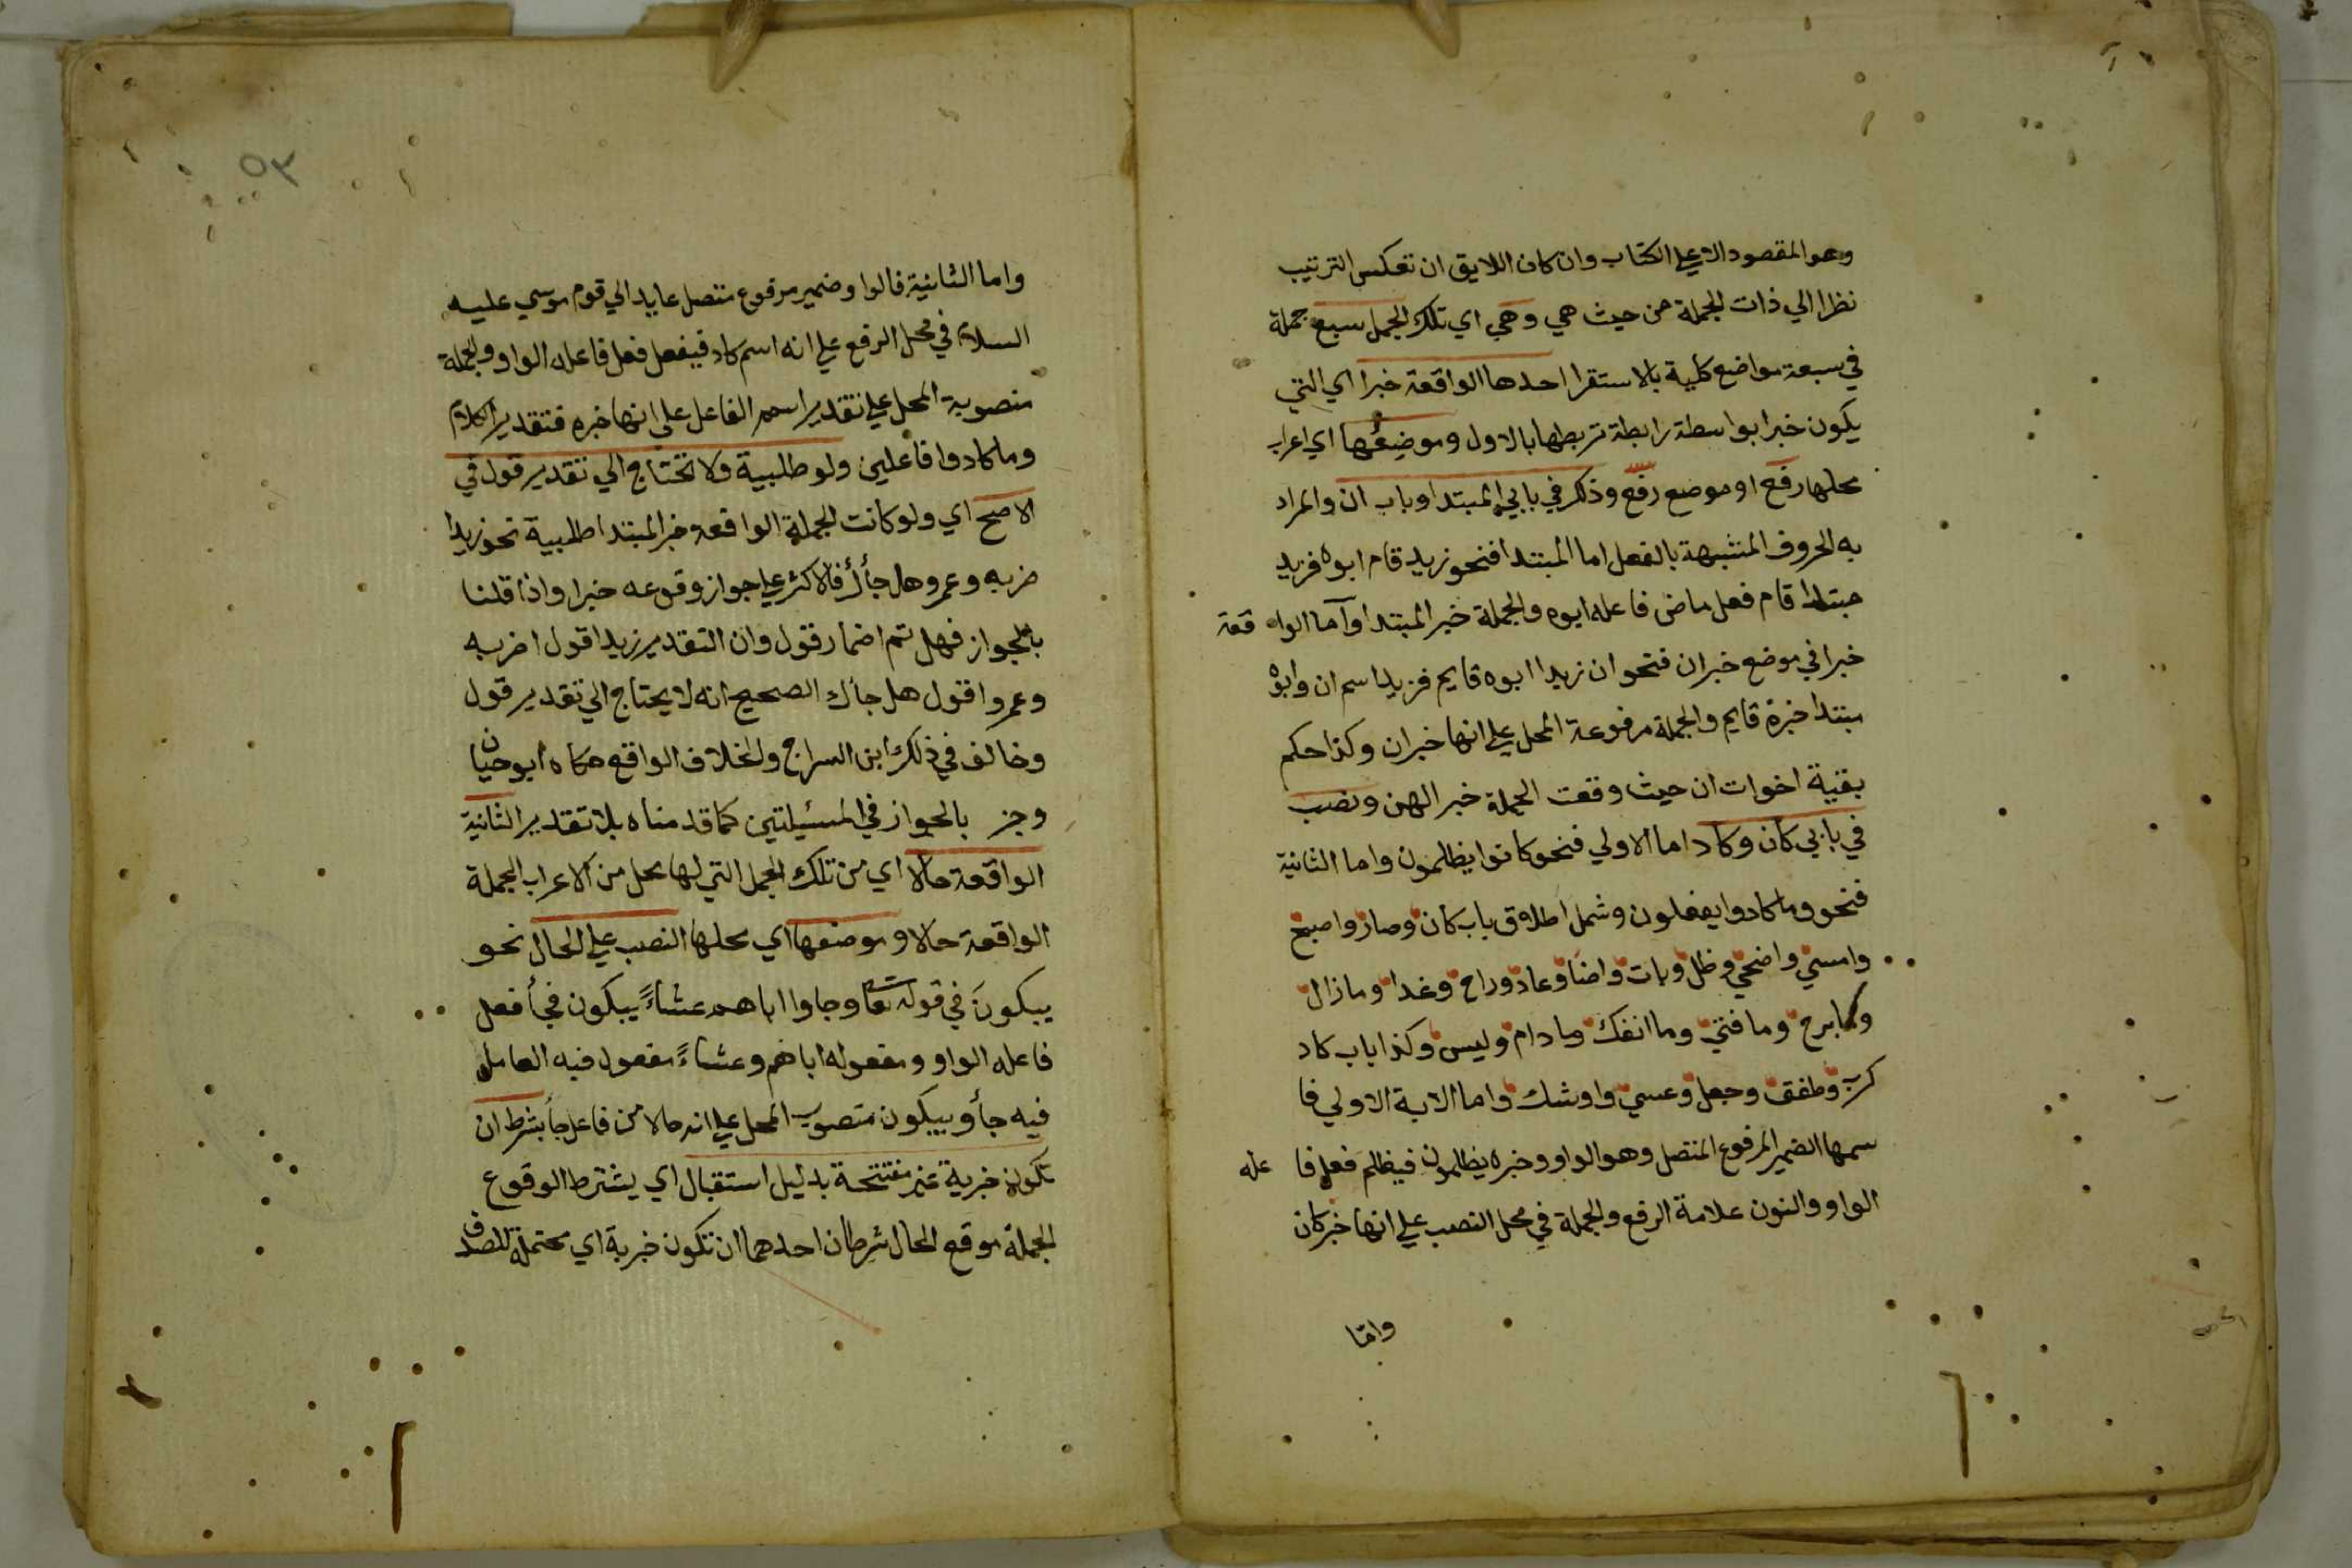 وهو المقصود الاعلى الكتاب وان كان اللايق ان تعكس الترتيب
نظرا الي ذات الجملة من حيث هي وهي اي تلك الجمل سبع جملة
في سبعة مواضع كلية بالاستقرا احدها الواقعة خبرا اي التي
يكون خبرا بواسطة رابطة تربطها بالاول وموضعها اي اعراب
محلها رفع او موضع رفع وذكر في بابي المبتدا وباب ان والمراد
به الحروف المشبهة بالفعل اما المبتدا فنحو زيد قام ابوه فزيد
مبتدا قام فعل ماض فاعله ابوه والجملة خبر المبتدا وآما الوا قعة
خبرا في موضع خبران فنحو ان زيدا ابوه قايم فزيدا اسم ان وابوه
مبتدا خبره قايم والجملة مرفوعة المحل علي انها خبران وكذا حكم
بقية اخوات ان حيث وقعت الجملة خبر الهن ونصب
في بابي كان وكاد اما الاولي فنحو كانوا يظلمون واما الثانية
فنحو وما كادوا يفعلون وشمل اطلاق باب كان وصار واصبح
وامسي واضحي وظل وبات واضا وعاد وراح وغدا وما زال
وما برح وما فتي وما انفك وما دام وليس وكذا باب كاد
كرب وطفق وجعل وعسي واوشك واما الاية الاولي فا
سمها الضمير المرفوع المتصل وهو الواو وخبره يظلمون فيظلم فعل فا عله
الواو والنون علامة الرفع والجملة في محل النصب علي انها خبر كان
واما
٥٣
واما الثانية فالواو ضمير مرفوع متصل عايد الي قوم موسي عليه
السلام في محل الرفع علي انه اسم كاد فيفعل فعل فاعله الواو والجملة
منصوبة المحل علي تقدير اسم الفاعل على انها خبره فتقدير الكلام
وما كادوا فاعلين ولو طلبية ولا تحتاج الي تقدير قول في
الاصح اي ولو كانت الجملة الواقعة خبر المبتدا طلبية نحو زيدا
ضربه وعمرو هل جأك فالاكثر علي جواز وقوعه خبرا واذا قلنا
بالجواز فهل تم اضمار قول وان التقدير زيدا قول اضربه
وعمروا قول هل جاك الصحيح انه لا يحتاج الي تقدير قول
وخالف في ذلك ابن السراج والخلاف الواقع حكاه ابو حيان
وجز بالجواز في المسيلتين كما قدمناه بلا تقدير الثانية
الواقعة حالا اي من تلك الجمل التي لها محل من الاعراب الجملة
الواقعة حالا وموضعها اي محلها النصب علي الحال نحو
يبكون في قوله تعا وجاوا اباهم عشاءً يبكون فجأ فعل
فاعله الواو ومفعوله اباهم وعشاءً مفعول فيه العامل
فيه جأ ويبكون منصوب المحل علي انه حالا من فاعل جأ بشرط ان
تكون خبرية غير مفتتحة بدليل استقبال اي يشترط الوقوع
الجملة موقع الحال شرطان احدهما ان تكون خبرية اي محتملة للصدق